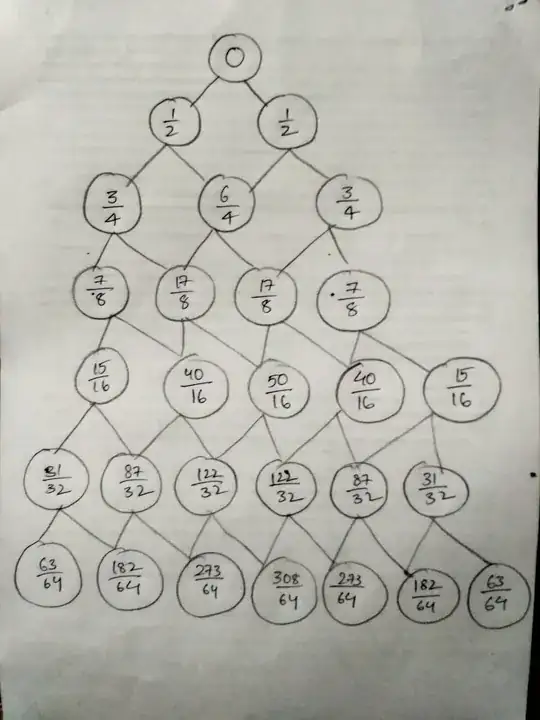 0
1/2 1/2
3/4 6/4 3/4
7/8 17/8 17/8 7/8
15/16 40/16 50/16 40/16 15/16
31/32 87/32 122/32 122/32 87/32 31/32
63/64 182/64 273/64 308/64 273/64 182/64 63/64